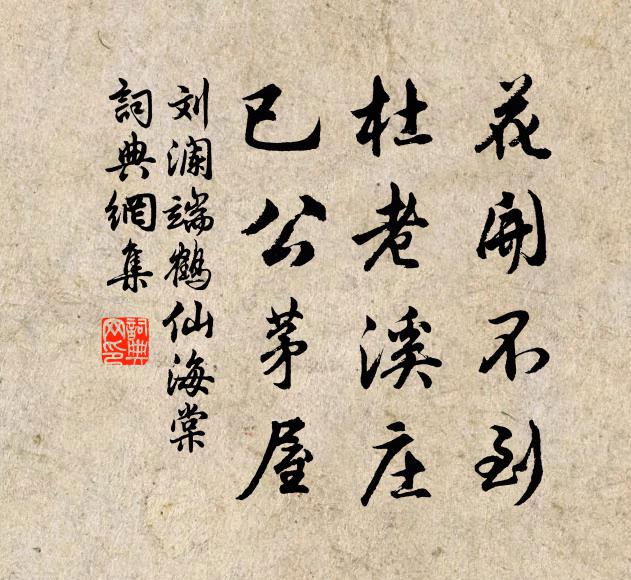 花開不到
杜老溪庄
已公茅屋
刘瀾端鶴仙海棠
詞典網集
詞典網印